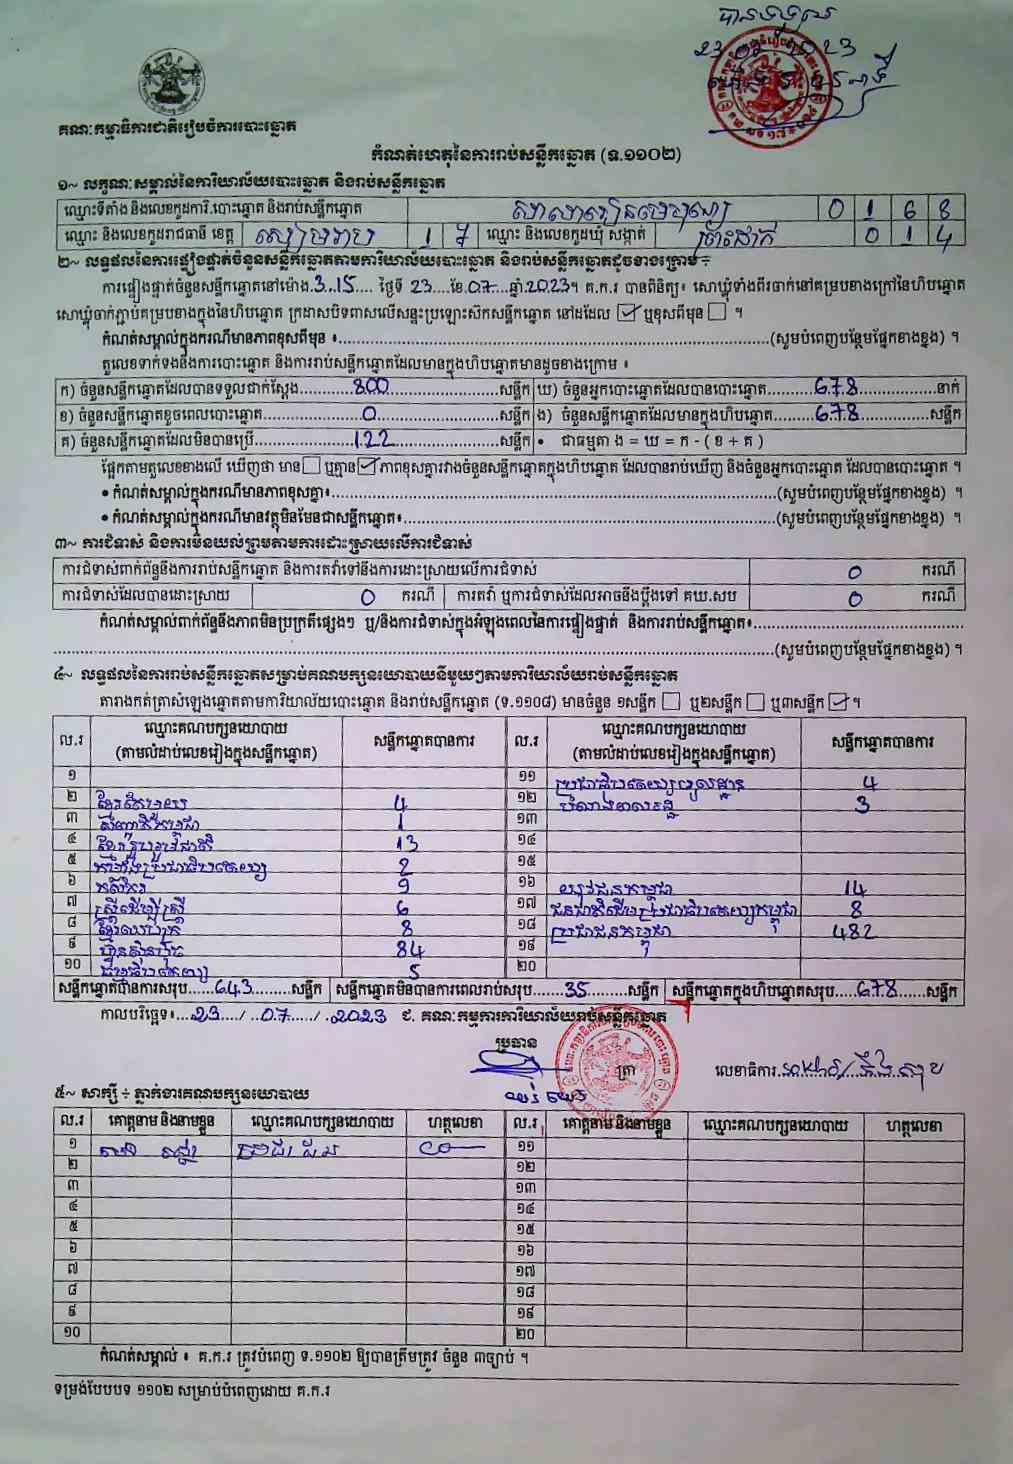 បានទទួល
23 07 2023
គណៈកម្មាធិការជាតិរៀបចំការបោះឆ្នោត
កំណត់ហេតុនៃការរាប់សន្លឹកឆ្នោត (ទ.១១០២)
១~ លក្ខណៈសម្គាល់នៃការិយាល័យបោះឆ្នោត និងរាប់សន្លឹកឆ្នោត
ឈ្មោះទីតាំង និងលេខកូដការិ.បោះឆ្នោត និងរាប់សន្លឹកឆ្នោត សាលារៀនមេបុណ្យ 0 1 6 8
ឈ្មោះ និងលេខកូដរាជធានី ខេត្ត សៀមរាប 1 7 ឈ្មោះ និងលេខកូដឃុំ សង្កាត់ ព្រះដាក់ 0 1 4
២~ លទ្ធផលនៃការផ្ទៀងផ្ទាត់ចំនួនសន្លឹកឆ្នោតតាមការិយាល័យបោះឆ្នោត និងរាប់សន្លឹកឆ្នោតដូចខាងក្រោម ÷
ការផ្ទៀងផ្ទាត់ចំនួនសន្លឹកឆ្នោតនៅម៉ោង.3..15.... ថ្ងៃទី 23....ខែ.07....ឆ្នាំ.2023។ គ.ក.រ បានពិនិត្យ៖ សោឃ្លុំទាំងពីរចាក់នៅគម្របខាងក្រៅនៃហិបឆ្នោត
សោឃ្លុំចាក់ភ្ជាប់គម្របខាងក្នុងនៃហិបឆ្នោត ក្រដាសបិទពាសលើសន្ទះប្រឡោះស៊កសន្លឹកឆ្នោត នៅដដែល ☑ ឬខុសពីមុន ☐ ។
កំណត់សម្គាល់ក្នុងករណីមានភាពខុសពីមុន ៖..........(សូមបំពេញបន្ថែមផ្នែកខាងខ្នង) ។
តួលេខទាក់ទងនឹងការបោះឆ្នោត និងការរាប់សន្លឹកឆ្នោតដែលមានក្នុងហិបឆ្នោតមានដូចខាងក្រោម ៖
ក) ចំនួនសន្លឹកឆ្នោតដែលបានទទួលជាក់ស្តែង..........800..........សន្លឹក ឃ) ចំនួនអ្នកបោះឆ្នោតដែលបានបោះឆ្នោត..........678..........នាក់
ខ) ចំនួនសន្លឹកឆ្នោតខូចពេលបោះឆ្នោត..........0..........សន្លឹក ង) ចំនួនសន្លឹកឆ្នោតដែលមានក្នុងហិបឆ្នោត..........678..........សន្លឹក
គ) ចំនួនសន្លឹកឆ្នោតដែលមិនបានប្រើ..........122..........សន្លឹក • ជាធម្មតា ង = ឃ = ក - ( ខ + គ )
ផ្អែកតាមតួលេខខាងលើ ឃើញថា មាន☐ ឬគ្មាន☑ភាពខុសគ្នារវាងចំនួនសន្លឹកឆ្នោតក្នុងហិបឆ្នោត ដែលបានរាប់ឃើញ និងចំនួនអ្នកបោះឆ្នោត ដែលបានបោះឆ្នោត ។
• កំណត់សម្គាល់ក្នុងករណីមានភាពខុសគ្នា៖..........(សូមបំពេញបន្ថែមផ្នែកខាងខ្នង) ។
• កំណត់សម្គាល់ក្នុងករណីមានវត្ថុមិនមែនជាសន្លឹកឆ្នោត៖..........(សូមបំពេញបន្ថែមផ្នែកខាងខ្នង) ។
៣~ ការជំទាស់ និងការមិនយល់ព្រមតាមការដោះស្រាយលើការជំទាស់
ការជំទាស់ពាក់ព័ន្ធនឹងការរាប់សន្លឹកឆ្នោត និងការតវ៉ាទៅនឹងការដោះស្រាយលើការជំទាស់ 0 ករណី
ការជំទាស់ដែលបានដោះស្រាយ 0 ករណី ការតវ៉ា ឬការជំទាស់ដែលអាចនឹងប្តឹងទៅ គឃ.សប 0 ករណី
កំណត់សម្គាល់ពាក់ព័ន្ធនឹងភាពមិនប្រក្រតីផ្សេងៗ ឬ/និងការជំទាស់ក្នុងអំឡុងពេលនៃការផ្ទៀងផ្ទាត់ និងការរាប់សន្លឹកឆ្នោត៖..........
..........(សូមបំពេញបន្ថែមផ្នែកខាងខ្នង) ។
៤~ លទ្ធផលនៃការរាប់សន្លឹកឆ្នោតសម្រាប់គណបក្សនយោបាយនីមួយៗតាមការិយាល័យរាប់សន្លឹកឆ្នោត
តារាងកត់ត្រាសំឡេងឆ្នោតតាមការិយាល័យបោះឆ្នោត និងរាប់សន្លឹកឆ្នោត (ទ.១១០៨) មានចំនួន ១សន្លឹក ☐ ឬ២សន្លឹក ☐ ឬ៣សន្លឹក ☑។
ល.រ ឈ្មោះគណបក្សនយោបាយ (តាមលំដាប់លេខរៀងក្នុងសន្លឹកឆ្នោត) សន្លឹកឆ្នោតបានការ ល.រ ឈ្មោះគណបក្សនយោបាយ (តាមលំដាប់លេខរៀងក្នុងសន្លឹកឆ្នោត) សន្លឹកឆ្នោតបានការ
១ ១១ ប្រជាធិបតេយ្យមូលដ្ឋាន 4
២ 4 ១២ 3
៣ 1 ១៣
៤ ខ្មែររួបរួមជាតិ 13 ១៤
៥ កម្លាំងប្រជាធិបតេយ្យ 2 ១៥
៦ កសិករ 9 ១៦ យុវជនកម្ពុជា 14
៧ ស្ត្រីដើម្បីស្ត្រី 6 ១៧ ជនជាតិដើមប្រជាធិបតេយ្យកម្ពុជា 8
៨ ខ្មែរឈប់ក្រ 8 ១៨ ប្រជាជនកម្ពុជា 482
៩ ហ្វ៊ុនស៊ិនប៉ិច 84 ១៩
១០ ធម្មាធិបតេយ្យ 5 ២០
សន្លឹកឆ្នោតបានការសរុប......643.........សន្លឹក សន្លឹកឆ្នោតមិនបានការពេលរាប់សរុប.......35.........សន្លឹក សន្លឹកឆ្នោតក្នុងហិបឆ្នោតសរុប.....678......សន្លឹក
កាលបរិច្ឆេទ៖....23..../ ..07....../ ..2023 ៩. គណៈកម្មការការិយាល័យរាប់សន្លឹកឆ្នោត
ប្រធាន
ត្រា
លេខាធិការ
៥~ សាក្សី ÷ ភ្នាក់ងារគណបក្សនយោបាយ
ល.រ គោត្តនាម និងនាមខ្លួន ឈ្មោះគណបក្សនយោបាយ ហត្ថលេខា ល.រ គោត្តនាម និងនាមខ្លួន ឈ្មោះគណបក្សនយោបាយ ហត្ថលេខា
១ ១១
២ ១២
៣ ១៣
៤ ១៤
៥ ១៥
៦ ១៦
៧ ១៧
៨ ១៨
៩ ១៩
១០ ២០
កំណត់សម្គាល់ ៖ គ.ក.រ ត្រូវបំពេញ ទ.១១០២ ឱ្យបានត្រឹមត្រូវ ចំនួន ៣ច្បាប់ ។
ទម្រង់បែបបទ ១១០២ សម្រាប់បំពេញដោយ គ.ក.រ